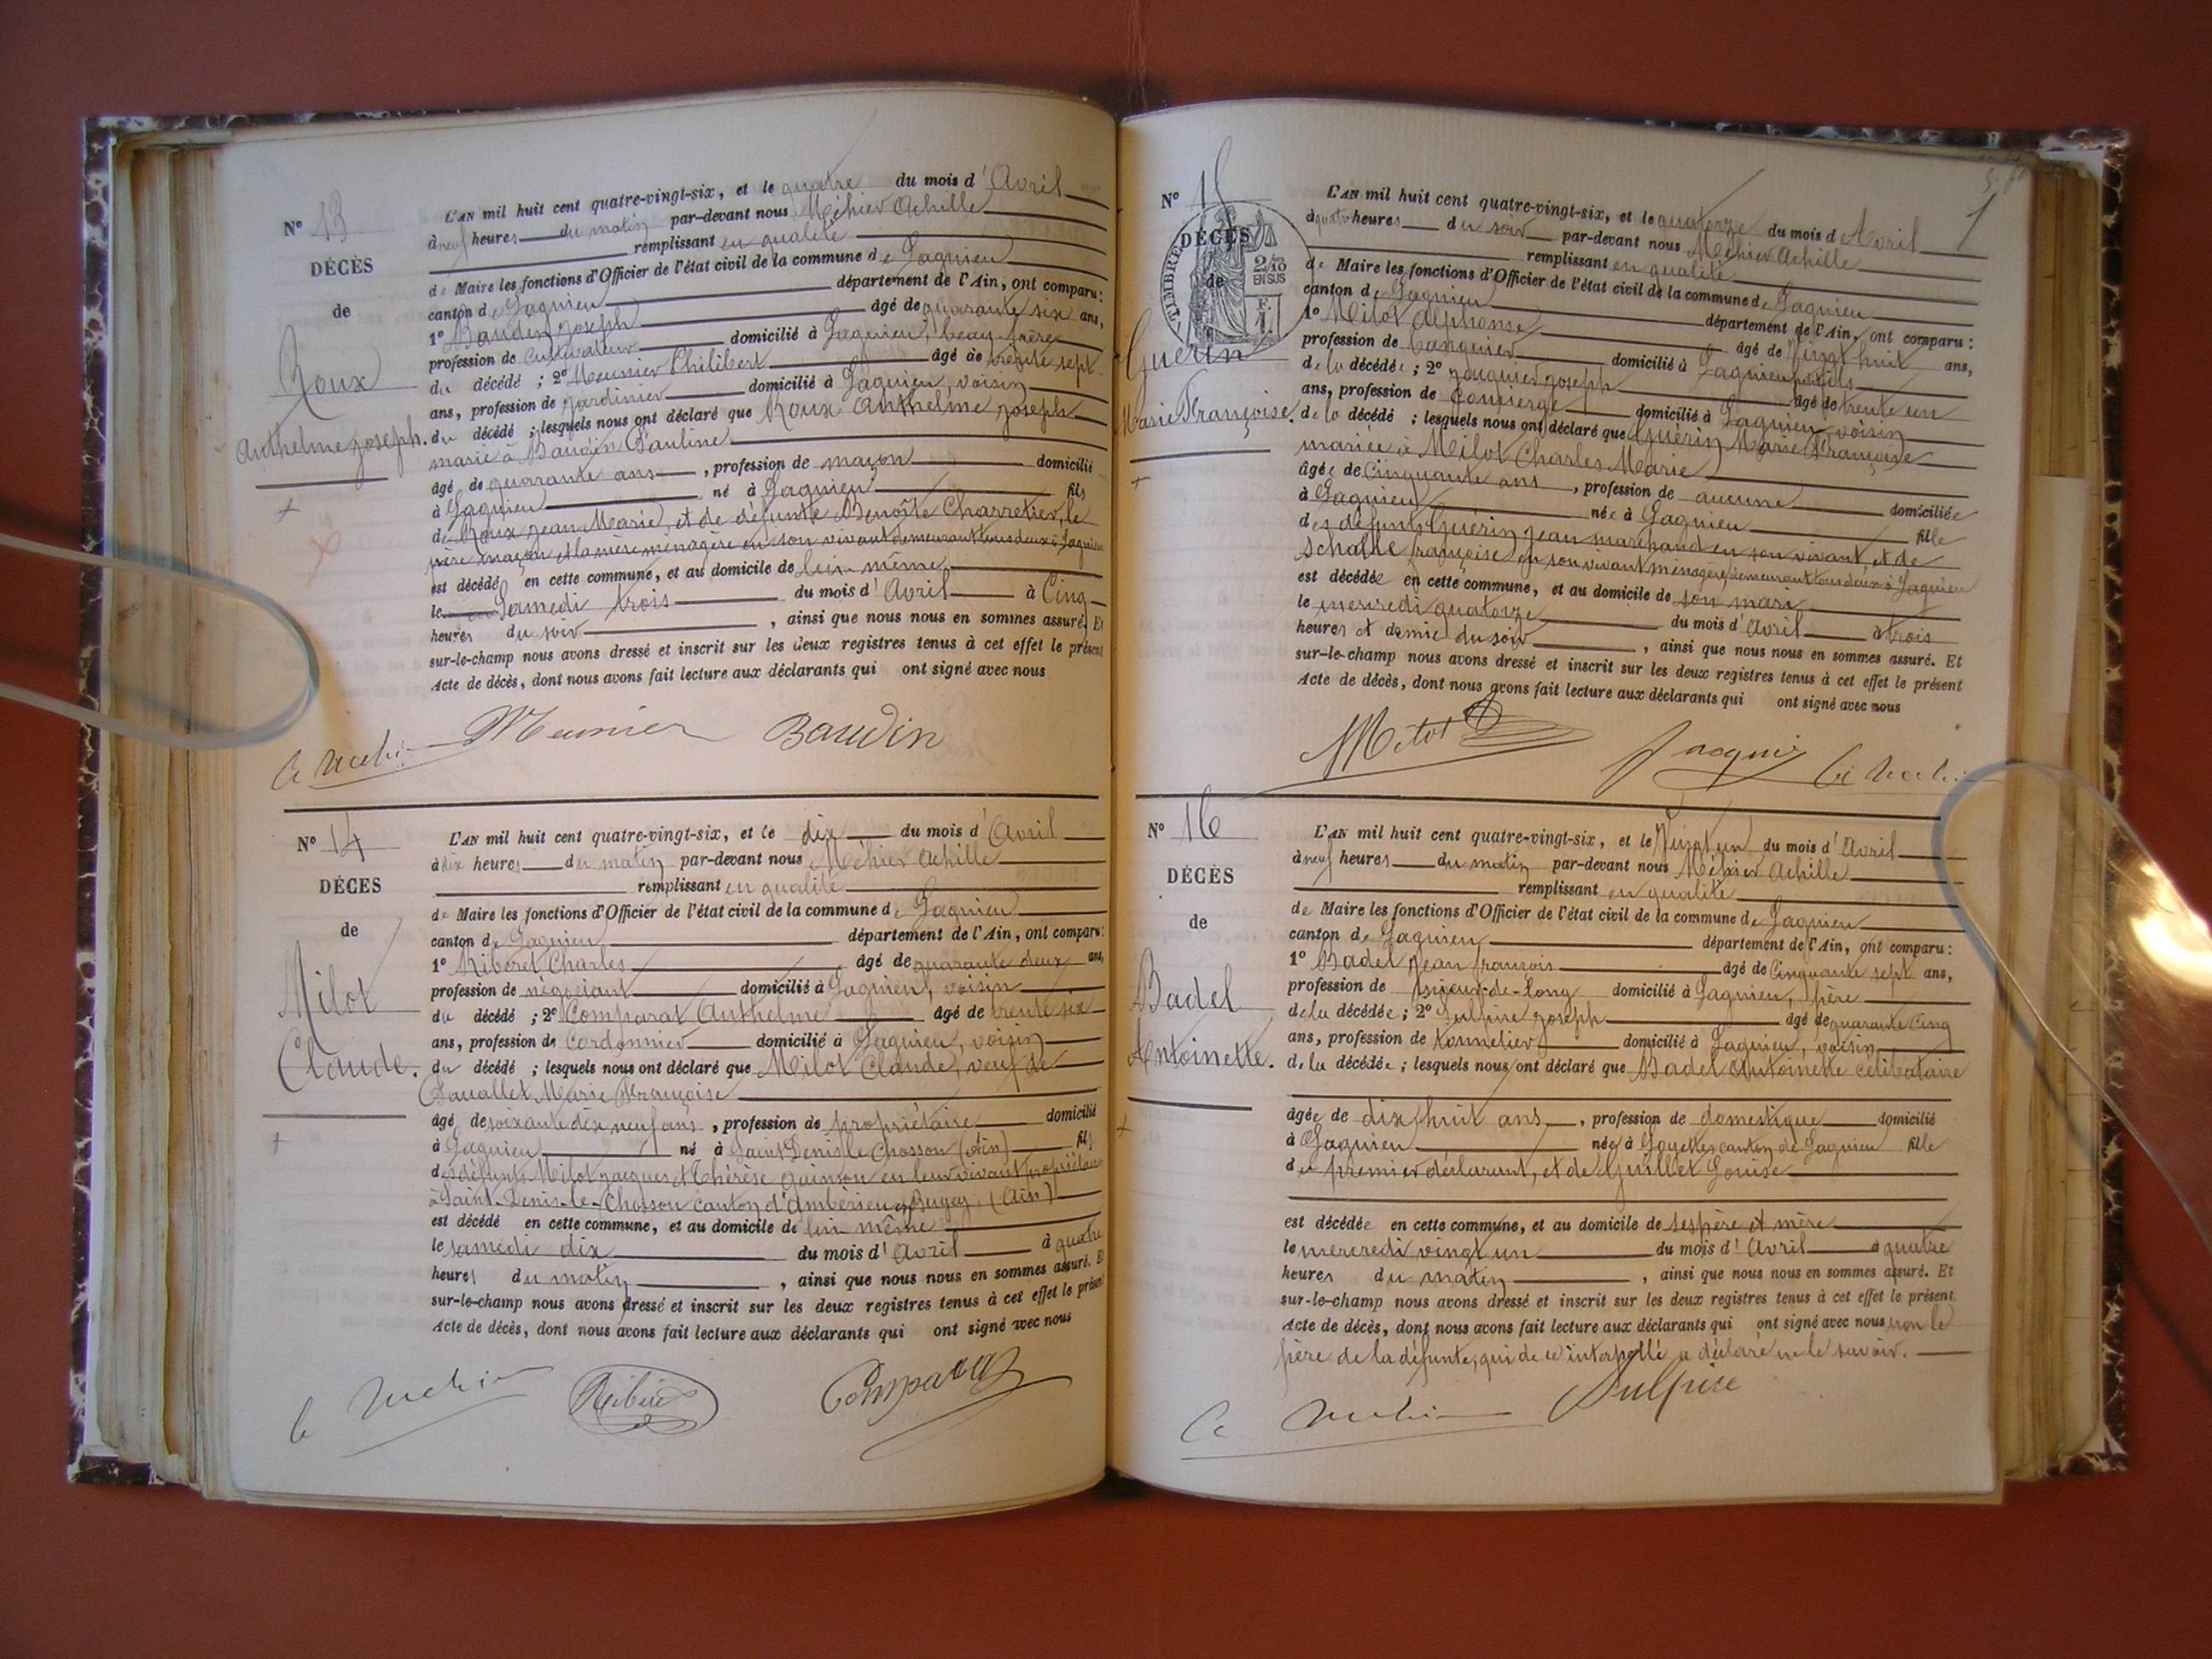 N° 13
DÉCÈS
de
Roux
Anthelme Joseph.
L'AN mil huit cent quatre-vingt-six, et le quatre du mois d'Avril
à neuf heures du matin par-devant nous Méhier Achille
remplissant en qualité
de Maire les fonctions d'Officier de l'état civil de la commune de Lagnieu
canton de Lagnieu département de l'Ain, ont comparu :
1° Baudin Joseph âgé de quarante six ans,
profession de cultivateur domicilié à Lagnieu, beau-frère
du décédé ; 2° Meunier Philibert âgé de trente sept
ans, profession de jardinier domicilié à Lagnieu, voisin
du décédé ; lesquels nous ont déclaré que Roux Anthelme Joseph
marié à Baudin Pauline
âgé de quarante ans, profession de maçon domicilié
à Lagnieu né à Lagnieu fils
de Roux Jean Marie, et de défunte Benoîte Charretier, le
père maçon et la mère ménagère en son vivant demeurant tous deux à Lagnieu
est décédé en cette commune, et au domicile de lui-même
le Samedi trois du mois d'Avril à Cinq
heures du soir, ainsi que nous nous en sommes assuré. Et
sur-le-champ nous avons dressé et inscrit sur les deux registres tenus à cet effet le présent
Acte de décès, dont nous avons fait lecture aux déclarants qui ont signé avec nous
Meunier Baudin
N° 14
DÉCES
de
Milot
Claude.
L'AN mil huit cent quatre-vingt-six, et le dix du mois d'Avril
à dix heures du matin par-devant nous Méhier Achille
remplissant en qualité
de Maire les fonctions d'Officier de l'état civil de la commune de Lagnieu
canton de Lagnieu département de l'Ain, ont comparu :
1° Riberet Charles âgé de quarante deux ans,
profession de négociant domicilié à Lagnieu, voisin
du décédé ; 2° Comparat Anthelme âgé de trente six
ans, profession de Cordonnier domicilié à Lagnieu, voisin
du décédé ; lesquels nous ont déclaré que Milot Claude, veuf de
Marie Françoise
âgé de soixante dix neuf ans, profession de propriétaire domicilié
à Lagnieu né à Saint Denis le Chosson (Ain) fils
des défunts Milot Jacques et Thérèse Quinson en leur vivant propriétaires
à Saint-Denis-le-Chosson canton d'Ambérieu en Bugey, (Ain)
est décédé en cette commune, et au domicile de lui-même
le samedi dix du mois d'Avril à quatre
heures du matin, ainsi que nous nous en sommes assuré. Et
sur-le-champ nous avons dressé et inscrit sur les deux registres tenus à cet effet le présent
Acte de décès, dont nous avons fait lecture aux déclarants qui ont signé avec nous
Comparat
N° 15
DÉCÈS
de
TIMBRE
2/10
EN SUS
Guérin
Marie Françoise.
L'AN mil huit cent quatre-vingt-six, et le quatorze du mois d'Avril
à quatre heures du soir par-devant nous Méhier Achille
remplissant en qualité
de Maire les fonctions d'Officier de l'état civil de la commune de Lagnieu
canton de Lagnieu département de l'Ain, ont comparu :
1° Milot Alphonse âgé de Vingt huit ans,
profession de banquier domicilié à Lagnieu, fils
de la décédée ; 2° Jacquier Joseph âgé de trente un
ans, profession de Concierge domicilié à Lagnieu, voisin
de la décédé ; lesquels nous ont déclaré que Guérin Marie Françoise
mariée à Milot Charles Marie
âgée de Cinquante ans, profession de aucune domiciliée
à Lagnieu née à Lagnieu fille
des défunts Guérin Jean marchand en son vivant et de
françoise en son vivant ménagère demeurant tous deux à Lagnieu
est décédée en cette commune, et au domicile de son mari
le mercredi quatorze du mois d'Avril à trois
heures et demie du soir, ainsi que nous nous en sommes assuré. Et
sur-le-champ nous avons dressé et inscrit sur les deux registres tenus à cet effet le présent
Acte de décès, dont nous avons fait lecture aux déclarants qui ont signé avec nous
Milot Jacquier
N° 16
DÉCÈS
de
Badel
Antoinette.
L'AN mil huit cent quatre-vingt-six, et le Vingt un du mois d'Avril
à neuf heures du matin par-devant nous Méhier Achille
remplissant en qualité
de Maire les fonctions d'Officier de l'état civil de la commune de Lagnieu
canton de Lagnieu département de l'Ain, ont comparu :
1° Badel Jean françois âgé de Cinquante sept ans,
profession de scieur-de-long domicilié à Lagnieu, père
de la décédée ; 2° Sulpice Joseph âgé de quarante Cinq
ans, profession de tonnelier domicilié à Lagnieu, voisin
de la décédée ; lesquels nous ont déclaré que Badel Antoinette célibataire
âgée de dix huit ans, profession de domestique domicilié
à Lagnieu née à Loyettes canton de Lagnieu fille
du premier déclarant, et de Guillet Louise
est décédée en cette commune, et au domicile de ses père et mère
le mercredi vingt un du mois d'Avril à quatre
heures du matin, ainsi que nous nous en sommes assuré. Et
sur-le-champ nous avons dressé et inscrit sur les deux registres tenus à cet effet le présent
Acte de décès, dont nous avons fait lecture aux déclarants qui ont signé avec nous non le
père de la défunte, qui de ce interpellé a déclaré ne le savoir.
Sulpice